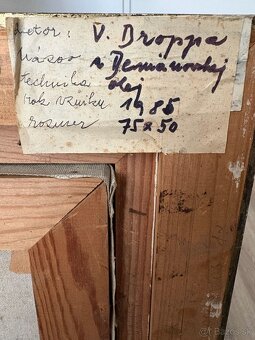 autor: V. Droppa
názov z Demänovskej
technika olej
rok vzniku 1985
rozmer 75x50